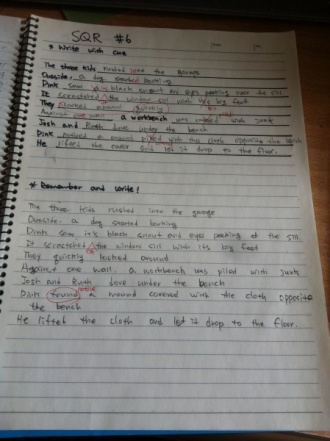 SQR #6
* Write with cue
The three kids rushed into the garage
Outside, a dog started barking
Dink saw black snout and eyes peeking over the sill
It scratched the window sill with big feet
They looked around quickly
Against one wall a workbench was piled with junk
Josh and Ruth dove under the bench
Dink noticed a mound with cloth opposite the bench
He lifted the and let it drop to the floor.
* Remember and Write!
The three kids rushed into the garage
Outside, a dog started barking
Dink saw it's black snout and eyes peeking at the sill.
It scratched the window sill with its big feet
They quickly looked around
Against one wall a workbench was piled with junk
Josh and Ruth dove under the bench
Dink found a mound covered with the cloth opposite
the bench
He lifted the cloth and let it drop to the floor.